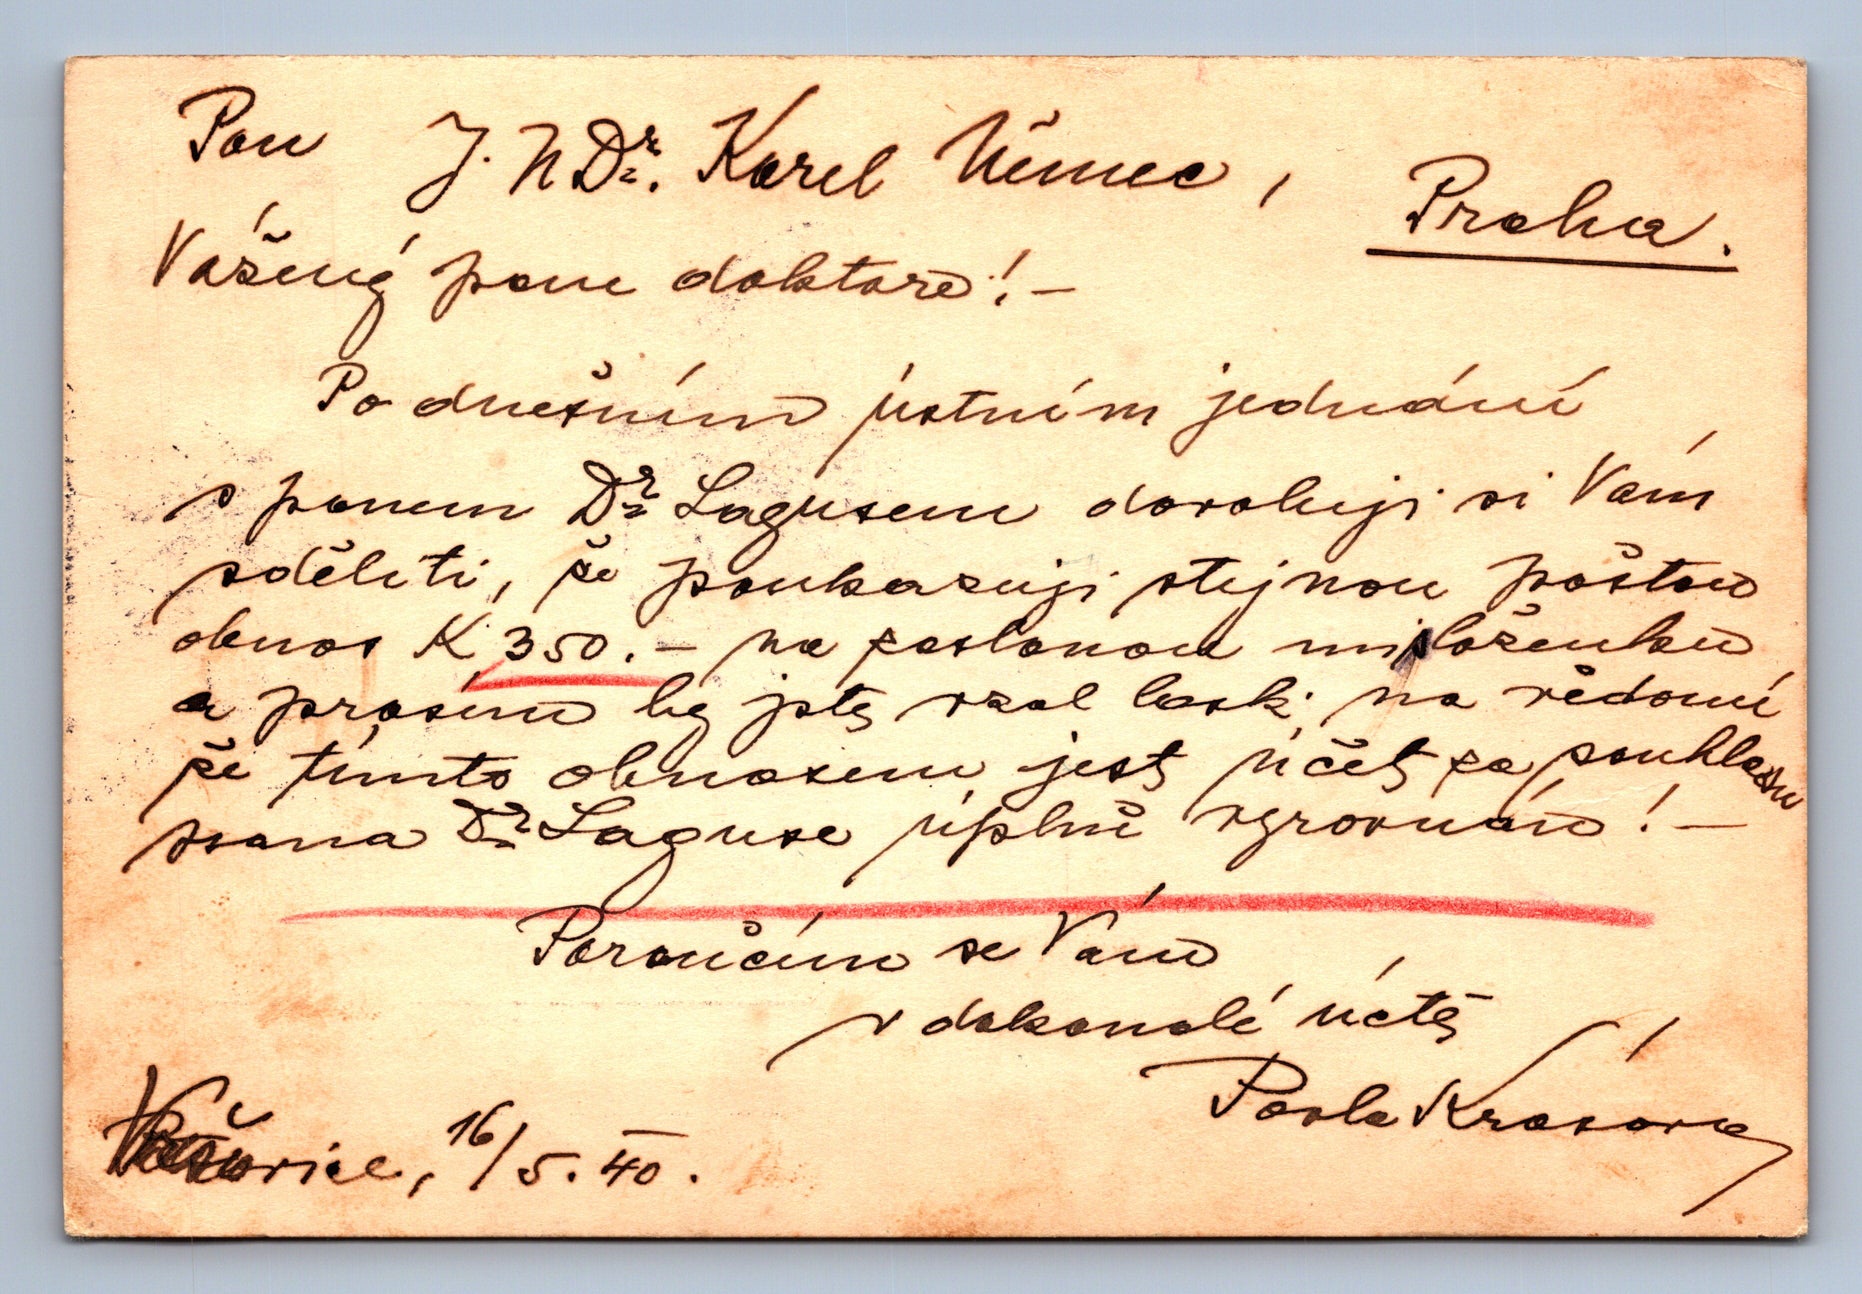 Pan J. U Dr. Karel Němec,
Praha.
Vážený pane doktore! —
Po dnešním ústním jednání
s panem Dr Lagusem dovoluji si Vám
sděliti, že poukazuji stejnou poštou
obnos K 350.— na zaslanou mi složenku
a prosím by jste vzal lask. na vědomí
že tímto obnosem jest účet za souhlasu
pana Dr Laguse úplně vyrovnán! —
Poroučím se Vám
v dokonalé úctě
Pavla Krásová
16/5. 40.